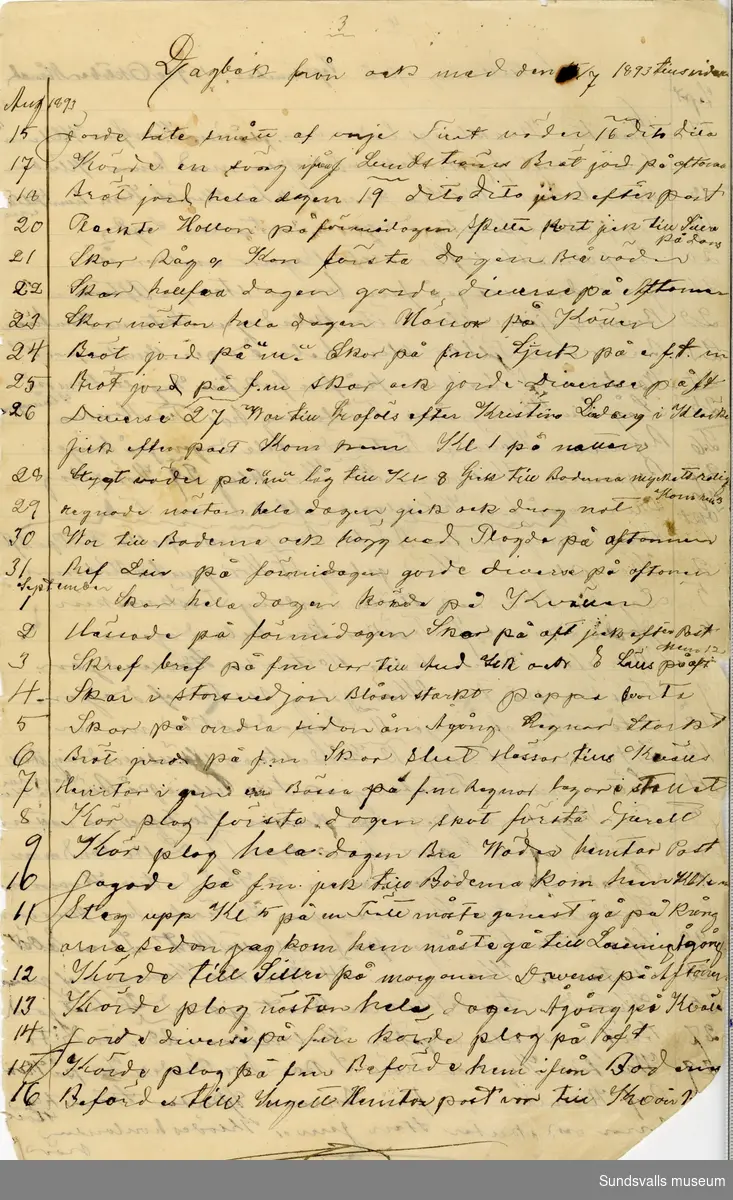 3
Dagbok från ock med den /7 1893 tills vidare
Aug 1893
15 Jorde lite smått af varje Fint väder 16 dito dito
17 Körde en sväng ifrå Lundströms Bröt jord på aftonen
18 Bröt jord hela dagen 19 dito dito jick efter post
20 Plockte Hallon på förmidagen Spelta kort jick till Sillre
på dans
21 Skar Råg o Kon första dagen Bra väder
22 Skar halfva dagen gorde diverse på Aftonen
23 Skar nöstan hela dagen Hässor på Kvällen
24 Bröt jord på "m" Skar på f.m. Sjuk på e.f.t. m
25 Bröt jord på f.m skar ock jorde Diversse på ft
26 Diverse 27 Var till efter Kristina i
jick efter post Kom hem Kl 1 på natten
28 Stygt väder på "m" låg till Kl 8 Gick till Bodema mycket rolig
Kom hem 3
29 regnade nöstan hela dagen gick ock drog not
30 Var till Bodema ock högg ved Plögde på aftonen
31 Ref Liin på förmidagen gorde diverse på aftonen
September
1 Skar hela dagen körde på Kvällen
2 Hässade på förmidagen Skar på aft jick efter Post
Hem 12
3 Skref bref på f.m var till And Isk ock E Lills på aft
4 Skar i storsvedjan Blåser starkt pappa borta
5 Skar på andra sidan ån Ågång Regnar Starkt
6 Bröt jord på f.m Skar Slut Hässar tills Kvälls
7 Hemtar i gen en Bössa på f.m Regnar lagar i stallet
8 Kör plog första dagen skot första djurett
9 Kör plog hela dagen Bra Väder hemtar Post
10 Jagade på f.m. jick till Bodema kom hem Kl
11 Steg upp Kl 5 på m måste genast gå på Kräng
arna sedan jag kom hem måste gå till Ågång
12 Körde till Sillre på morgonen Diverse på Aftonen
13 Körde plog nöstan hela dagen Ågång på Kväll
14 Jorde diverse på f.m körde plog på aft
15 Körde plog på f.m Beförde hem ifrån Bod
16 Beförde till Ungett Hemtar post var till
Sundsvalls museum